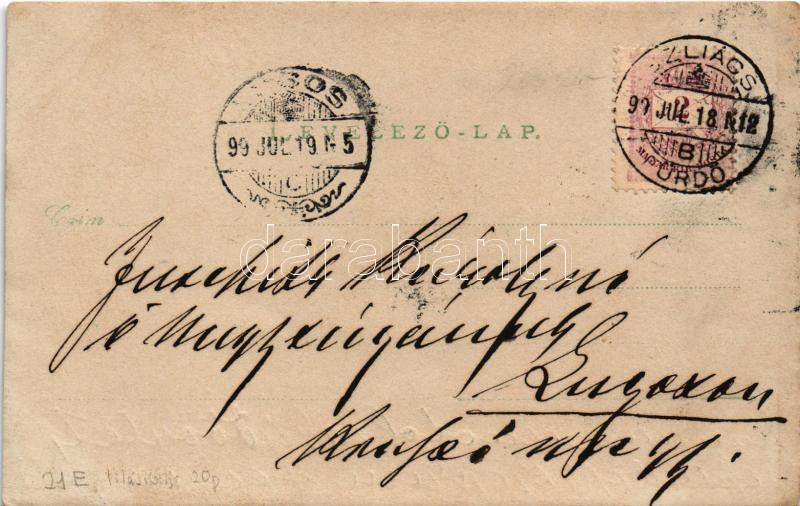 SZLIÁCS
99 JUL 18 N.12
B
FÜRDŐ
LUGOS
99 JUL 19 N 5
LEVELEZŐ-LAP.
Czim
Károlyné
ő Nagyságának
Lugoson
Krassó megye.
darabanth
21 E. 20p